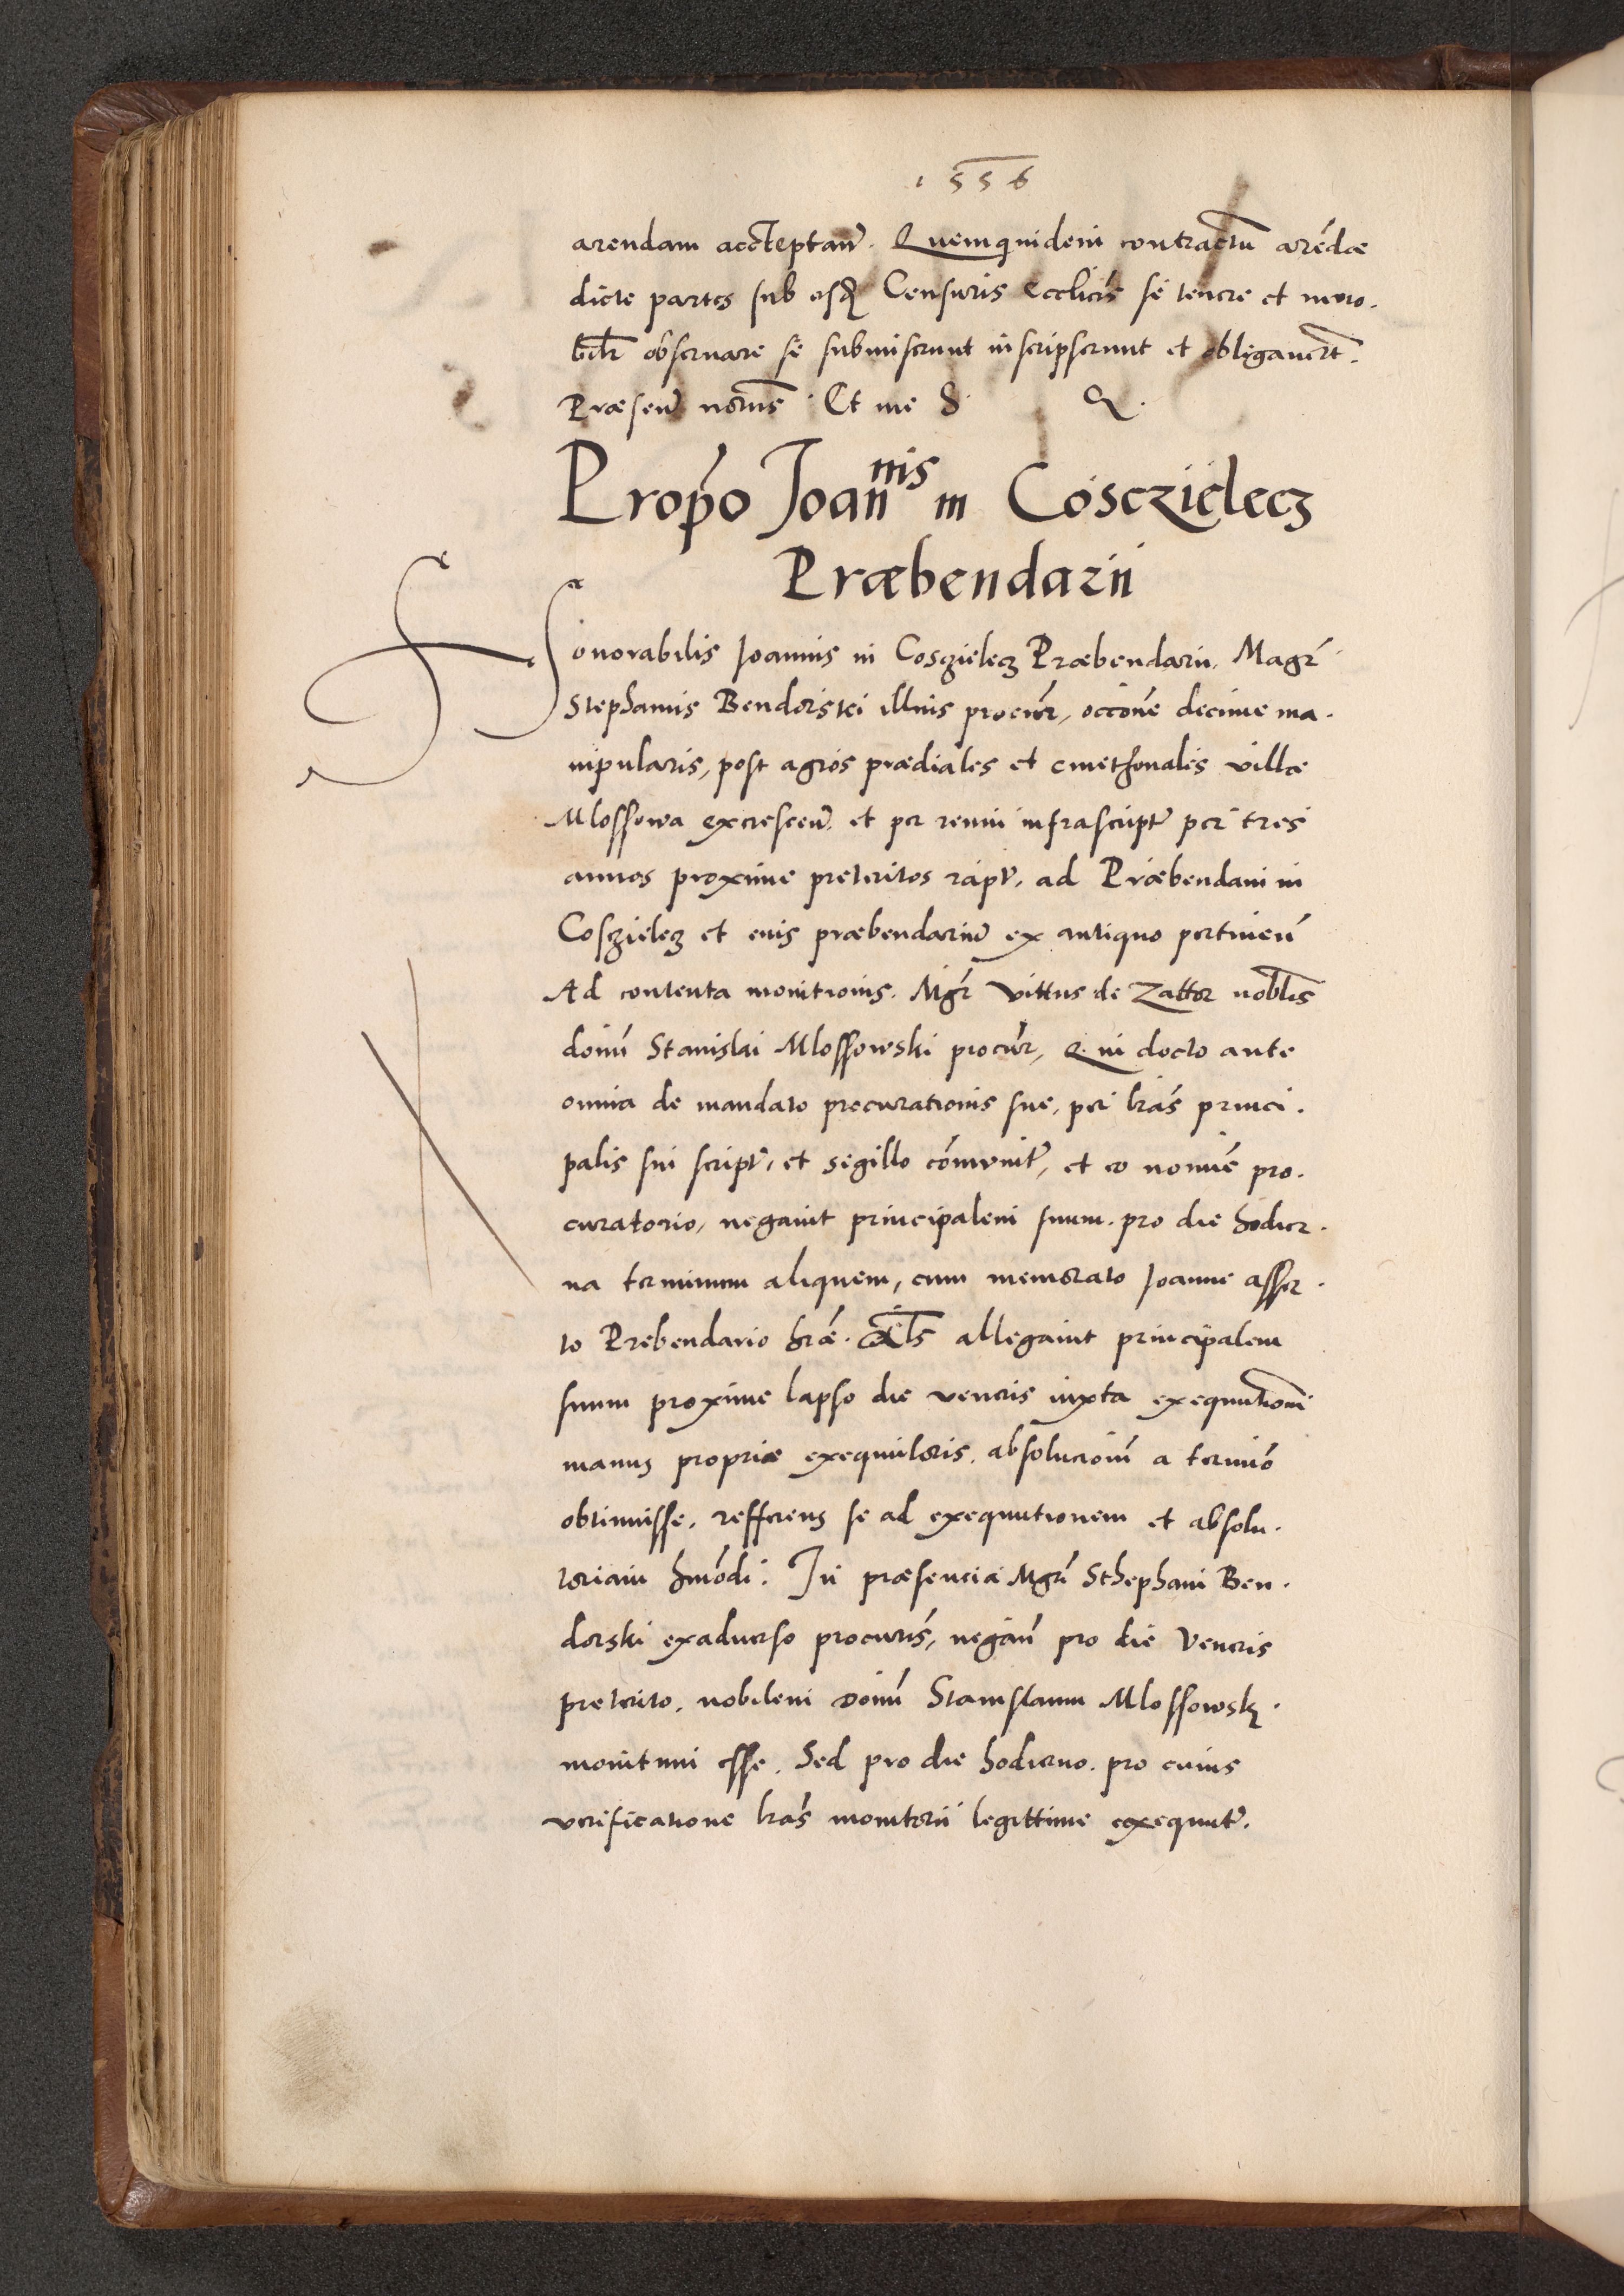 1556
arendam acceptaṅ. Quemquidem contractū arēdæ
dicte partes sub eisd Censuris Ecclicis se tenere et invio.
lblr observare se submiserunt inscripserunt et obligaverūt.
Præsen Et me &
Propō Joannis in Cosczielecz
Præbendarii
Honorabilis Joannis in Cosczielecz Præbendarii, Magr
Stephanus Bendorski illius procur, occōne decime ma.
nipularis, post agros prædiales et cmethonales villæ
Mlossowa excrescen et per reum infrascript per tres
annos proxime preteritos rapt, ad Præbendam in
Cosczielecz et eius præbendarium ex antiquo pertineñ
Ad contenta monitionis. Mgr Vittus de Zattor nobilis
domi Stanislai Mlossowski procur, Qui docto ante
omnia de mandato procurationis sue, per lras princi.
palis sui script, et sigillo cōmunit, et eo nomine pro.
curatorio, negavit principalem suum pro die hodier.
na terminum aliquem, cum memorato Joanne asser.
to Prebendario hræ. Als allegavit principalem
suum proxime lapso die veneris iuxta exequutionem
manus propriæ exequutoris, absolucionem a termino
obtinuisse, refferens se ad exequutionem et absolu.
toriam hmodi. In præsencia Mgri Sthephani Ben.
dorski exadverso procuris, negan pro die Veneris
preterito, nobilem domi Stanislaum Mlossowski
monitum esse. Sed pro die hodierno. pro cuius
verificatione lras monitorii legittime exequut.